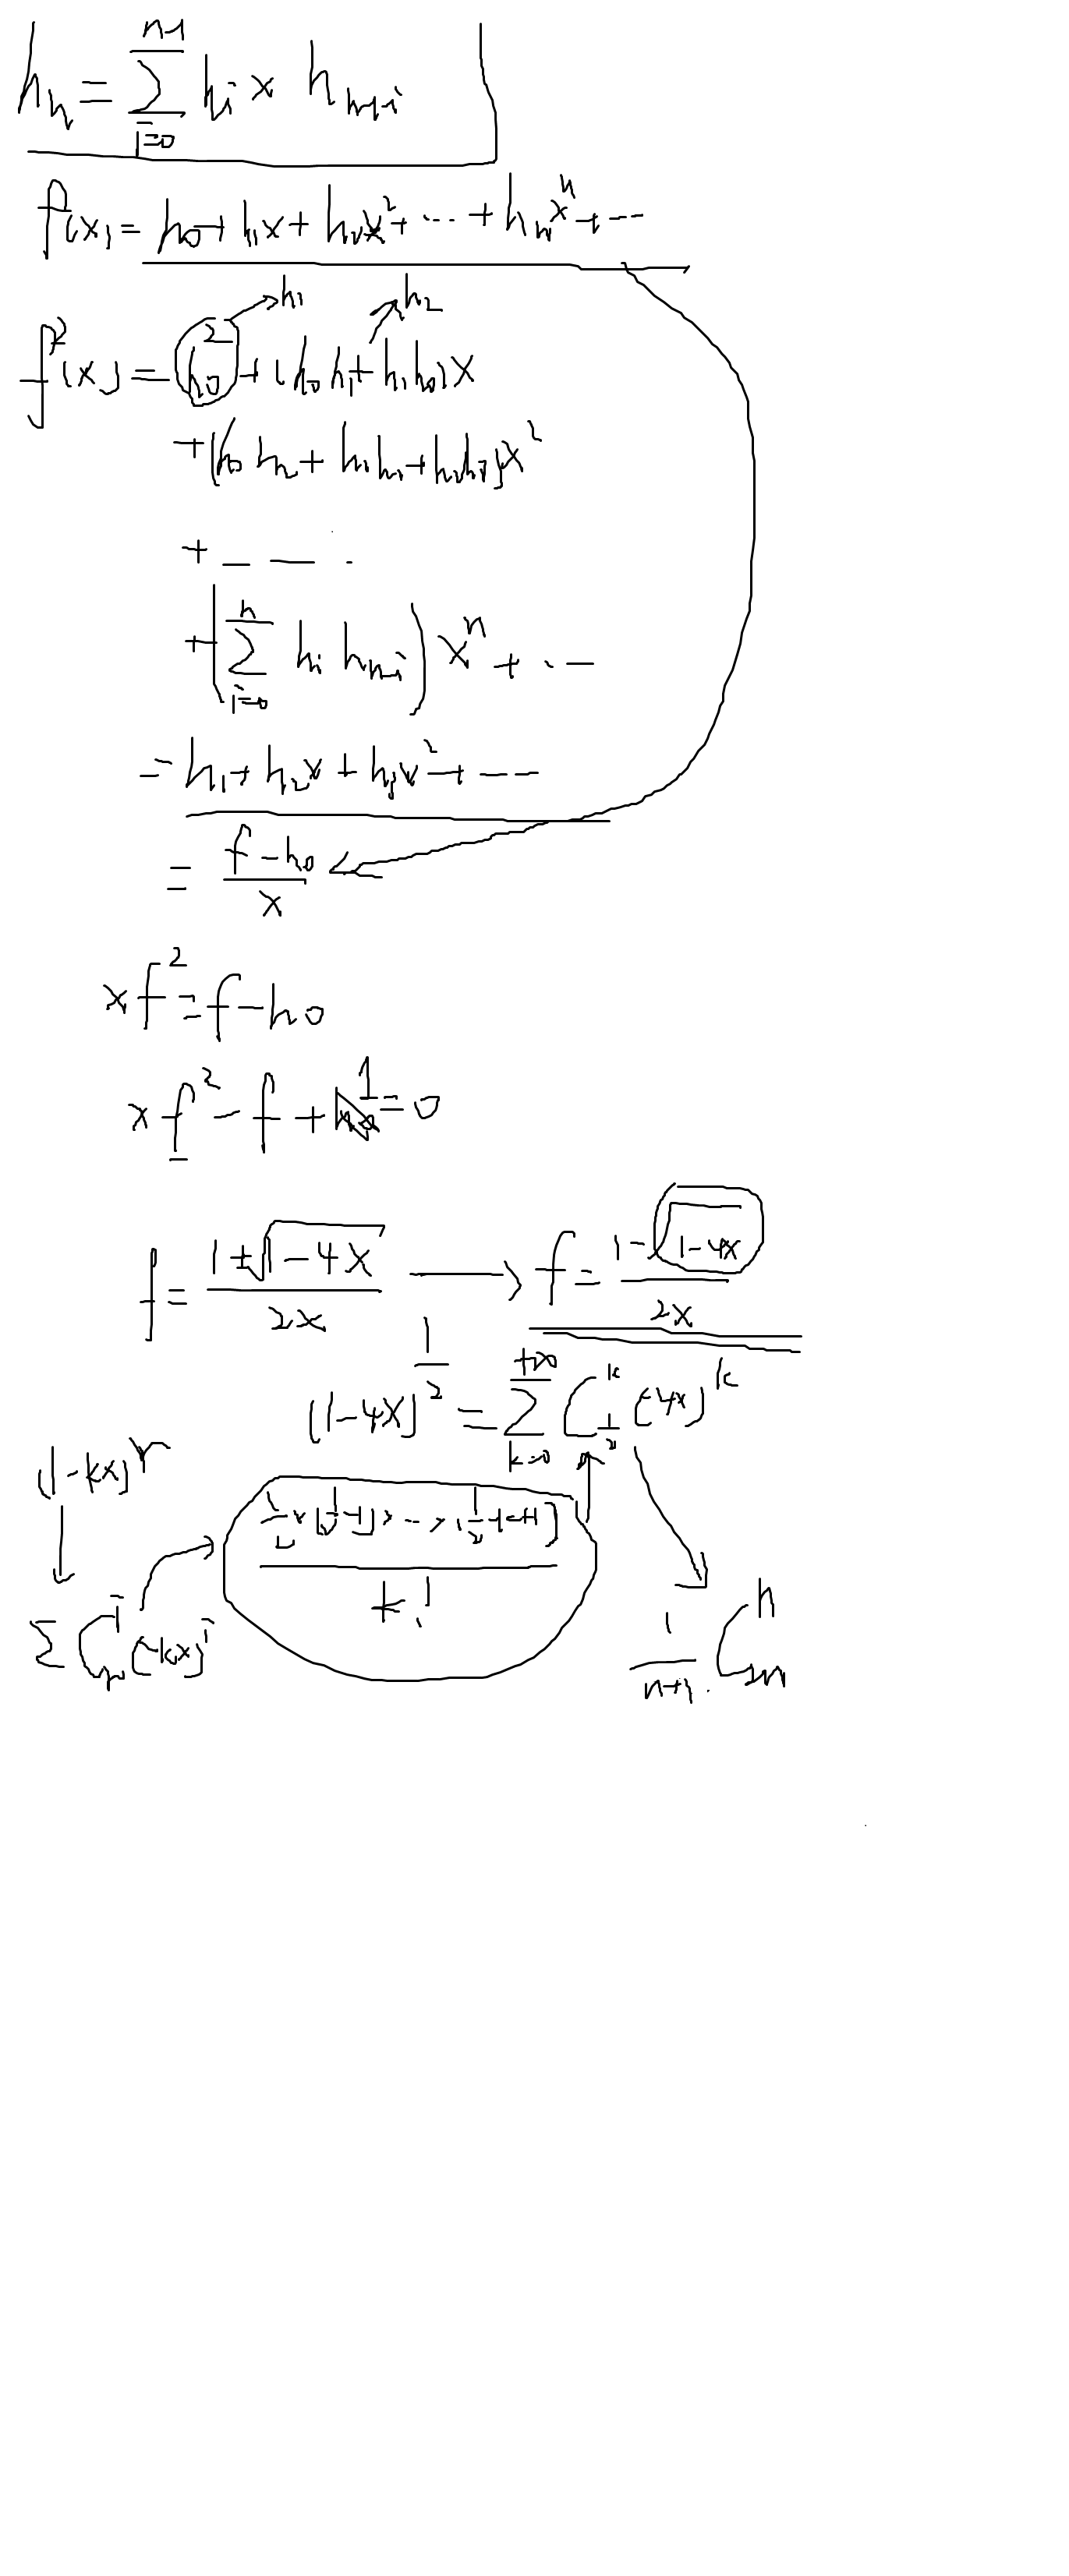 hₙ = ∑_{i=0}^{n-1} hᵢ × h_{n-1-i}
f(x) = h₀ + h₁x + h₂x² + ... + hₙxⁿ + ...
→ h₁ → h₂
f²(x) = h₀² + (h₀h₁ + h₁h₀)x
+ (h₀h₂ + h₁h₁ + h₂h₀)x²
+ ...
+ (∑_{i=0}^{n} hᵢ h_{n-i}) xⁿ + ...
= h₁ + h₂x + h₃x² + ...
= (f - h₀)/x
xf² = f - h₀
xf² - f + 1 = 0
f = (1 ± √(1-4x))/(2x) → f = (1 - √(1-4x))/(2x)
(1-4x)^{1/2} = ∑_{k=0}^{+∞} C_{1/2}^{k} (-4x)^k
(1-kx)^r
(1/2 × (1/2 - 1) × ... × (1/2 - k + 1))/k!
∑ C_r^i (-kx)^i
1/(n+1) · C_{2n}^{n}